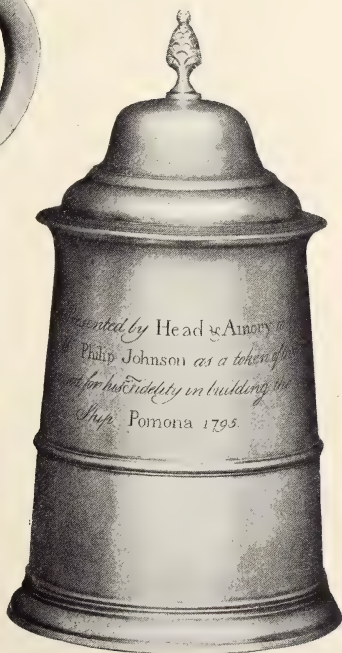 by Head & Amory
Philip Johnson as a token of
for his Fidelity in building the
Ship Pomona 1795.